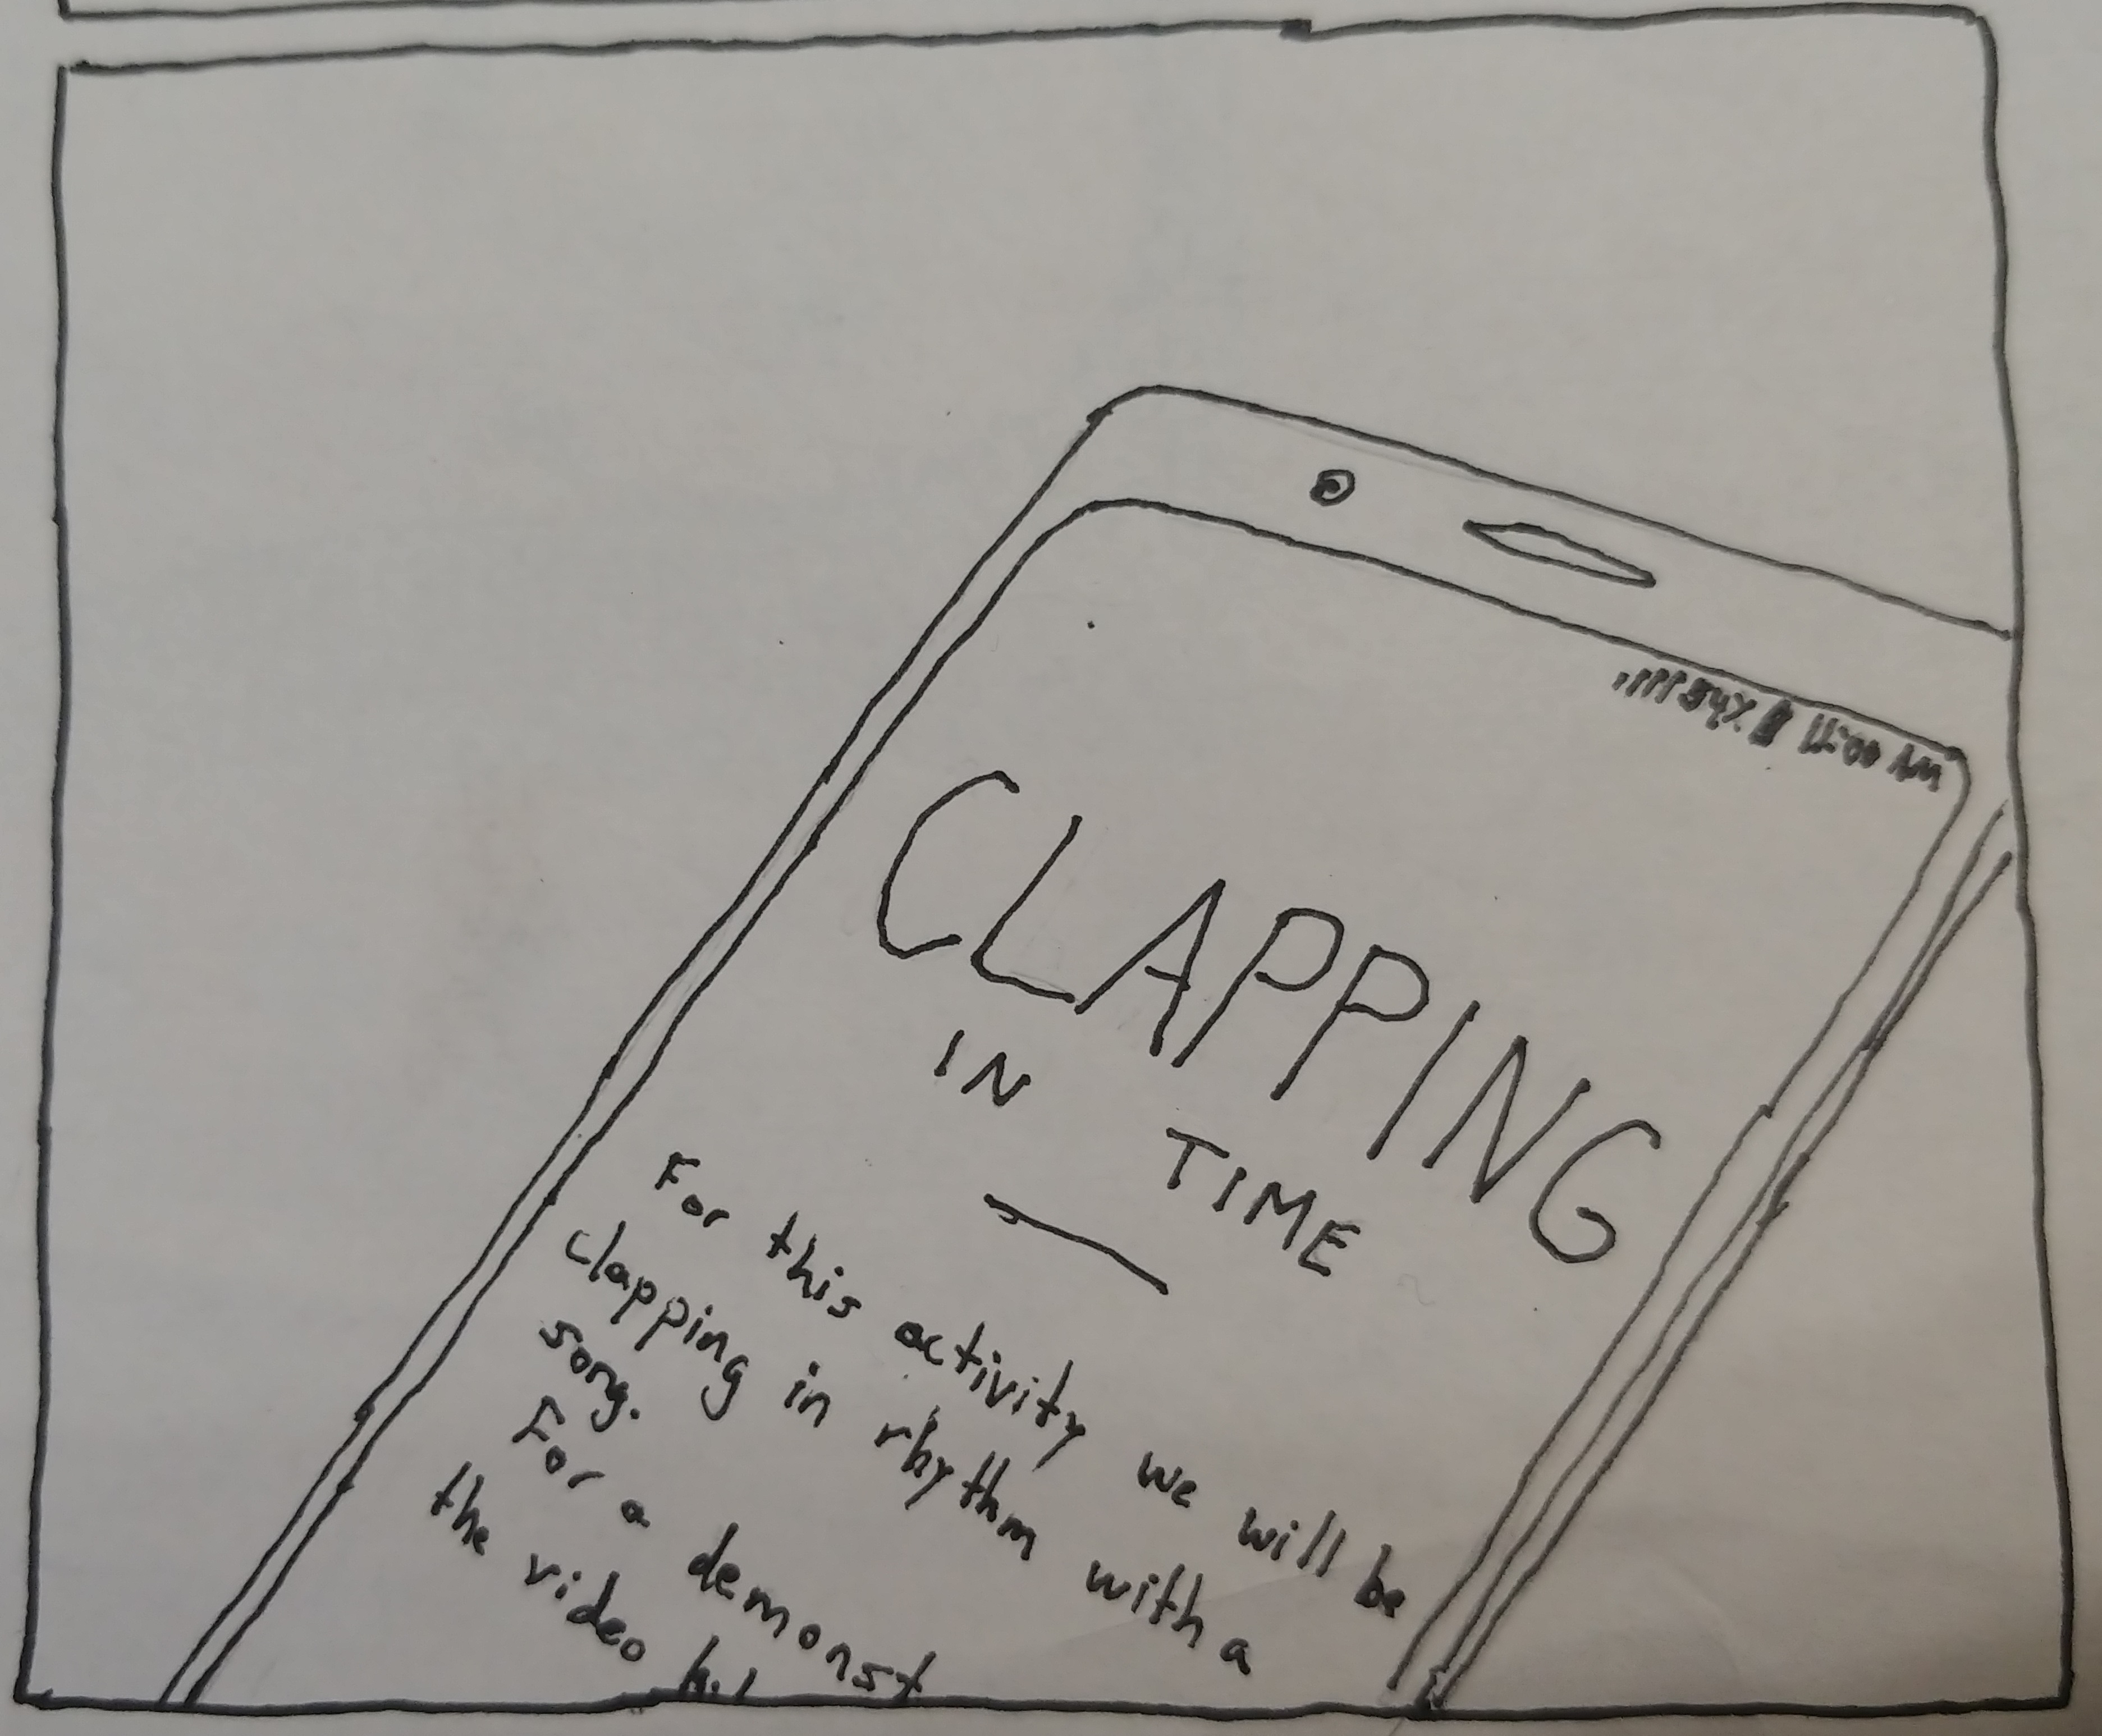 54% 11:00 AM
CLAPPING
IN TIME
For this activity we will be
clapping in rhythm with a
song.
For a demonst
the video